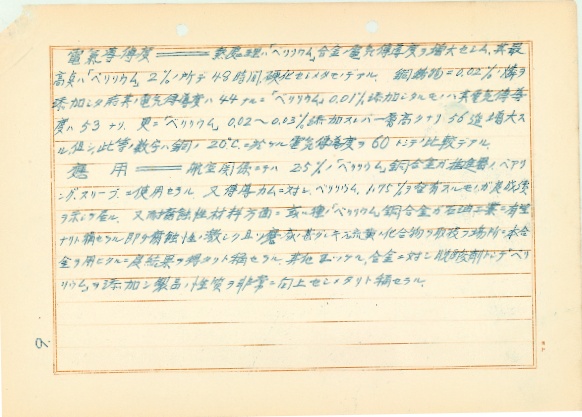 電氣導傳度 ═══ 熱處理ハ「ベリリウム」合金ノ電気傳導度ヲ増大セシム、其最
高点ハ「ベリリウム」2%ノ所デ 48時間硬化セシメタモノデアル、銅鑄物ニ0.02%ノ燐ヲ
添加シタ結果ノ電気傳導度ハ 44ナルニ「ベリリウム」0.01%添加シタルモノハ其電気傳導
度ハ 53ナリ、更ニ「ベリリウム」0.02〜0.03%添加スレバ一番高クナリ 56迄増大ス
ル、但シ此等ノ数字ハ銅ノ 20°Cニ於ケル電気傳導度ヲ 60トシテノ比較デアル、
應用 ═══ 航空関係ニテハ 2.5%ノ「ベリリウム」銅合金ガ推進器ノベアリ
ングスリーブニ使用セラル 又 カムニ対シ ベリリウム 1.75%ヲ含有スルモノガ良成績
ヲ示シ居ル、又耐腐蝕性材料方面ニ或ル種ノ「ベリリウム」銅合金ガ石油工業ニ有望
ナリト稱セラル 即チ腐蝕性ノ激シク且ツ磨 甚ダシキ 硫黄化合物ヲ取扱フ場所ニ本合
金ヲ用ヒタルニ良結果ヲ得タリト稱セラル、其他 合金ニ対シ脱酸剤トシテ「ベ
リリウム」ヲ添加シ製品ノ性質ヲ非常ニ向上セシメタリト稱セラル、
9